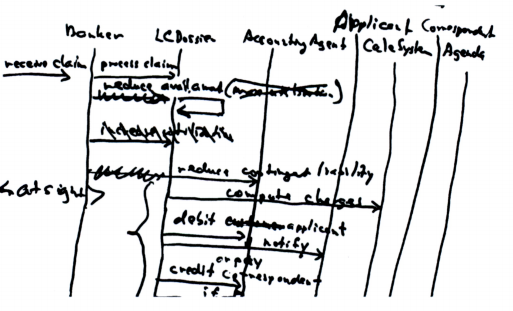 Banker LCDossier Accounting Agent Applicant CalcSystem Correspondent Agenda
receive claim process claim
reduce avail. amount
reduce contingent liability
<at sight>
compute charges
debit applicant
notify
or pay
credit correspondent
if